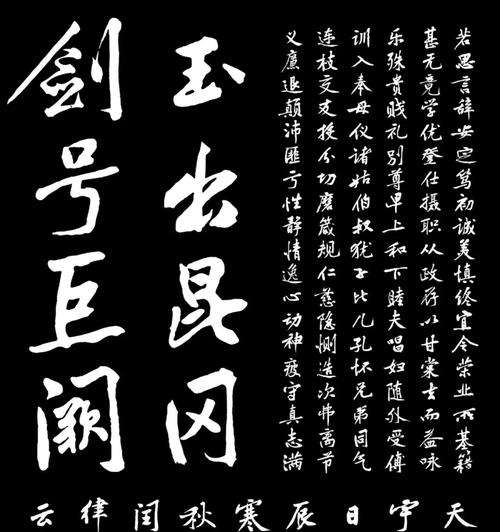 若思言辞安定笃初诚美慎终宜令荣业所基籍
甚无竟学优登仕摄职从政存以甘棠去而益咏
乐殊贵贱礼别尊卑上和下睦夫唱妇随外受傅
训入奉母仪诸姑伯叔犹子比儿孔怀兄弟同气
连枝交友投分切磨箴规仁慈隐恻造次弗离节
义廉退颠沛匪亏性静情逸心动神疲守真志满
玉出昆冈
剑号巨阙
天宇日辰寒秋闰律云